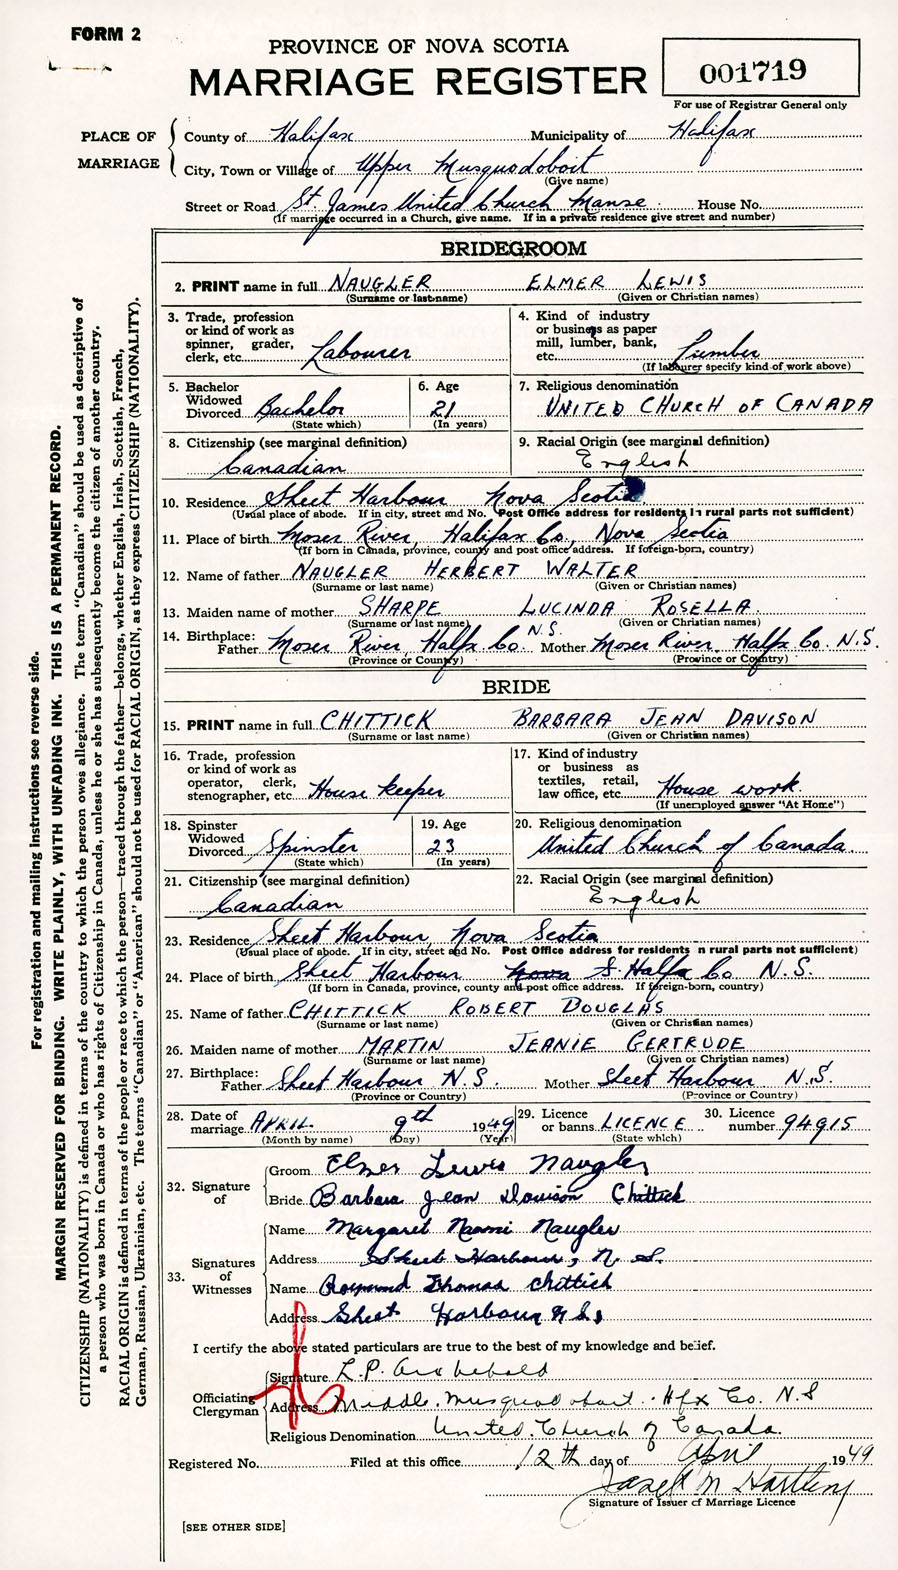 FORM 2
PROVINCE OF NOVA SCOTIA
MARRIAGE REGISTER
001719
For use of Registrar General only
PLACE OF MARRIAGE
County of Halifax Municipality of Halifax
City, Town or Village of Upper Musquodoboit
(Give name)
Street or Road St. James United Church Manse. House No.
(If marriage occurred in a Church, give name. If in a private residence give street and number)
BRIDEGROOM
2. PRINT name in full NAUGLER ELMER LEWIS
(Surname or last name) (Given or Christian names)
3. Trade, profession or kind of work as spinner, grader, clerk, etc. Labourer
4. Kind of industry or business as paper mill, lumber, bank, etc. Lumber
(If labourer specify kind of work above)
5. Bachelor Widowed Divorced Bachelor
(State which)
6. Age 21
(In years)
7. Religious denomination
UNITED CHURCH OF CANADA
8. Citizenship (see marginal definition)
Canadian
9. Racial Origin (see marginal definition)
English
10. Residence Sheet Harbour Nova Scotia
(Usual place of abode. If in city, street and No. Post Office address for residents in rural parts not sufficient)
11. Place of birth Moser River, Halifax Co., Nova Scotia
(If born in Canada, province, county and post office address. If foreign-born, country)
12. Name of father NAUGLER HERBERT WALTER
(Surname or last name) (Given or Christian names)
13. Maiden name of mother SHARPE LUCINDA ROSELLA.
(Surname or last name) (Given or Christian names)
14. Birthplace: Father Moser River, Halfx Co. N.S. Mother Moser River, Halfx Co. N.S.
(Province or Country) (Province or Country)
BRIDE
15. PRINT name in full CHITTICK BARBARA JEAN DAVISON
(Surname or last name) (Given or Christian names)
16. Trade, profession or kind of work as operator, clerk, stenographer, etc. House keeper
17. Kind of industry or business as textiles, retail, law office, etc. House work.
(If unemployed answer "At Home")
18. Spinster Widowed Divorced Spinster
(State which)
19. Age 23
(In years)
20. Religious denomination
United Church of Canada.
21. Citizenship (see marginal definition)
Canadian
22. Racial Origin (see marginal definition)
English
23. Residence Sheet Harbour, Nova Scotia
(Usual place of abode. If in city, street and No. Post Office address for residents n rural parts not sufficient)
24. Place of birth Sheet Harbour Nova S Halfx Co N.S.
(If born in Canada, province, county and post office address. If foreign-born, country)
25. Name of father CHITTICK ROBERT DOUGLAS
(Surname or last name) (Given or Christian names)
26. Maiden name of mother MARTIN JEANIE GERTRUDE
(Surname or last name) (Given or Christian names)
27. Birthplace: Father Sheet Harbour N.S. Mother Sheet Harbour N.S.
(Province or Country) (Province or Country)
28. Date of marriage APRIL 9th 1949
(Month by name) (Day) (Year)
29. Licence or banns LICENCE
(State which)
30. Licence number 94915
32. Signature of
Groom Elmer Lewis Naugler
Bride Barbara Jean Davison Chittick
33. Signatures of Witnesses
Name Margaret Naomi Naugler
Address Sheet Harbour, N. S.
Name Raymond Thomas Chittick
Address Sheet Harbour N.S.
I certify the above stated particulars are true to the best of my knowledge and belief.
Officiating Clergyman
Signature L.P. Archibald
Address Middle Musquodoboit. Hfx Co. N.S
Religious Denomination United Church of Canada.
Registered No. Filed at this office 12th day of April 1949
Signature of Issuer of Marriage Licence
[SEE OTHER SIDE]
For registration and mailing instructions see reverse side.
MARGIN RESERVED FOR BINDING. WRITE PLAINLY, WITH UNFADING INK. THIS IS A PERMANENT RECORD.
CITIZENSHIP (NATIONALITY) is defined in terms of the country to which the person owes allegiance. The term "Canadian" should be used as descriptive of
a person who was born in Canada or who has rights of Citizenship in Canada, unless he or she has subsequently become the citizen of another country.
RACIAL ORIGIN is defined in terms of the people or race to which the person—traced through the father—belongs, whether English, Irish, Scottish, French,
German, Russian, Ukrainian, etc. The terms "Canadian" or "American" should not be used for RACIAL ORIGIN, as they express CITIZENSHIP (NATIONALITY).